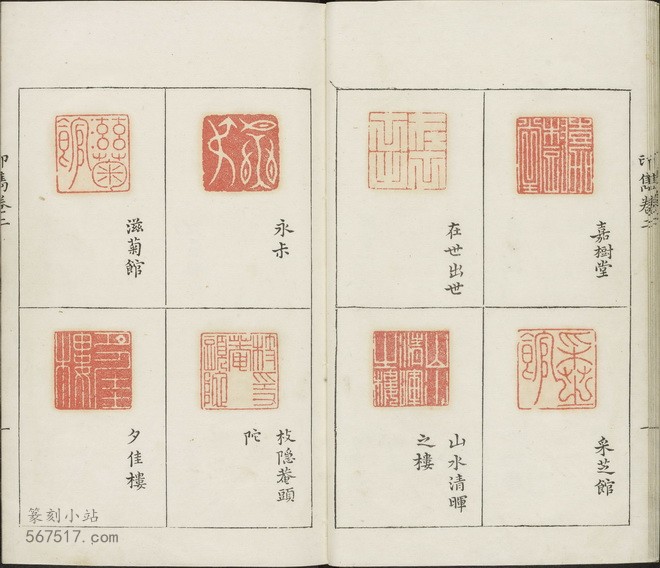 印雋卷之
嘉樹堂
在世出世
采芝館
山水清暉
之樓
永
滋菊館
枝隱菴頭
陀
夕佳樓
印雋卷二
篆刻小站
567517.com